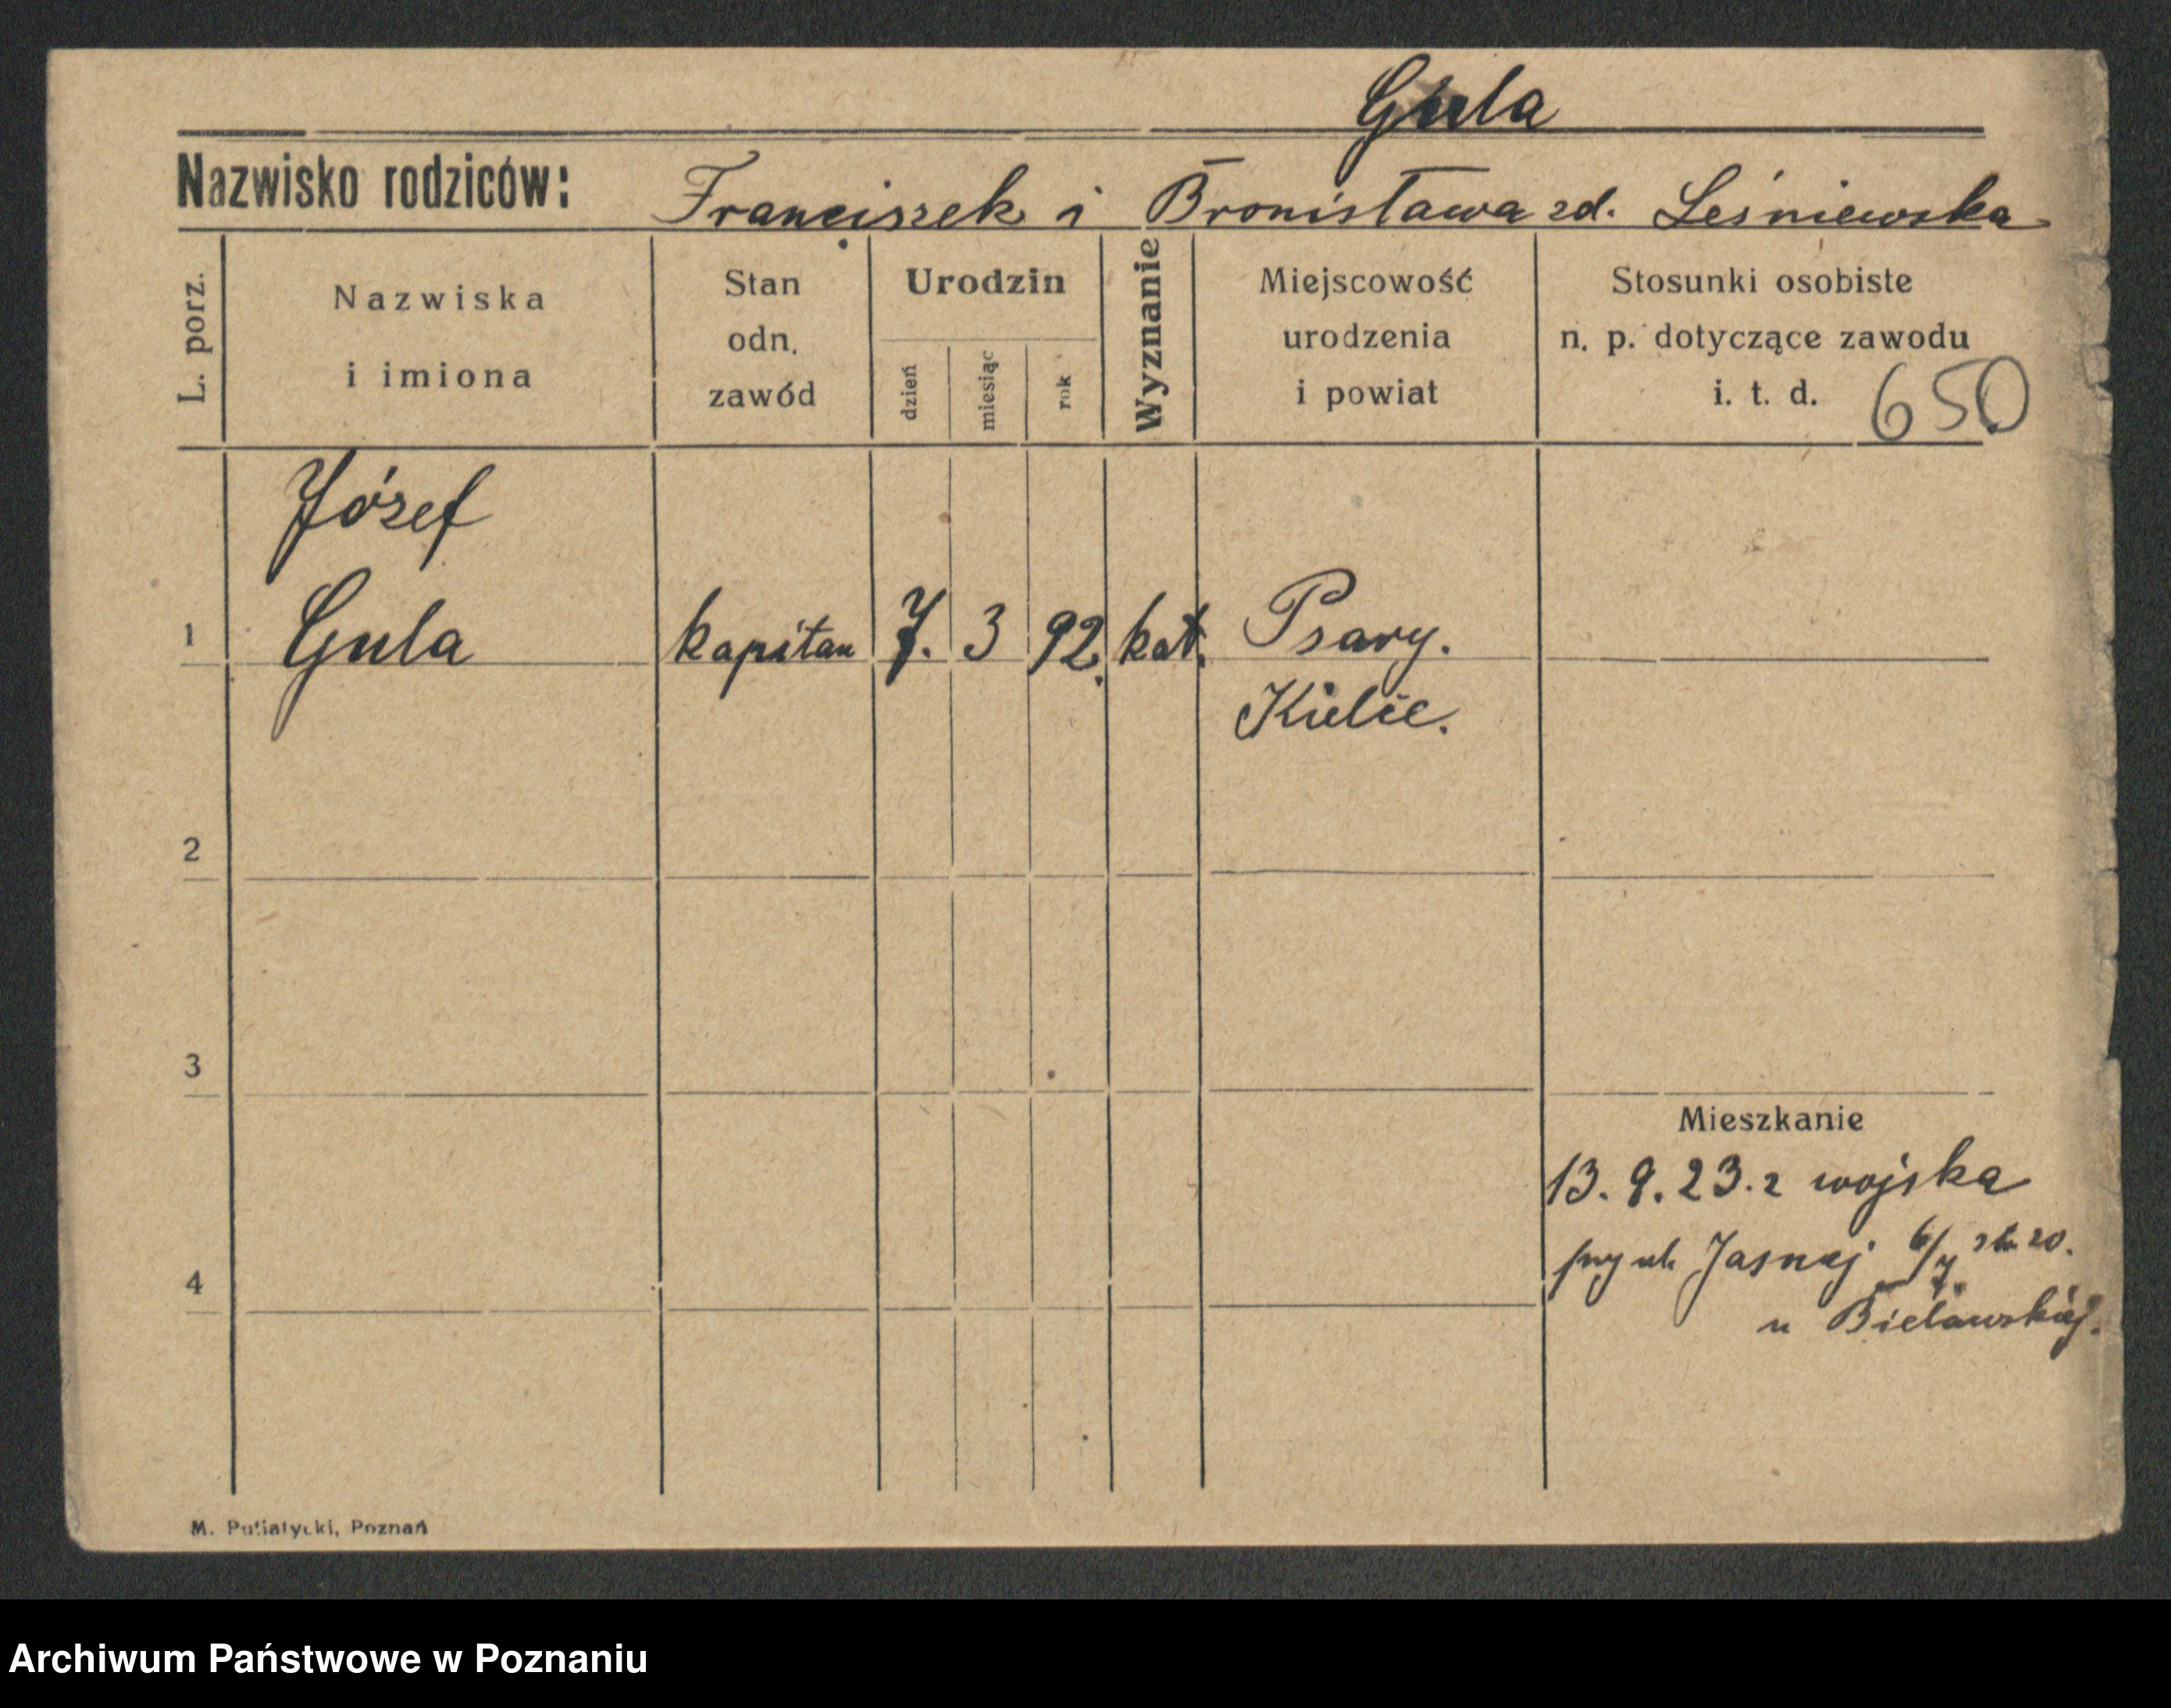 Gula
Nazwisko rodziców: Franciszek i Bronisława zd. Leśniewska
L. porz.
Nazwiska
i imiona
Stan
odn.
zawód
Urodzin
dzień
miesiąc
rok
Wyznanie
Miejscowość
urodzenia
i powiat
Stosunki osobiste
n. p. dotyczące zawodu
i. t. d.
650
Józef
1 Gula kapitan 7. 3 92. kat. Psary.
Kielce.
2
3
Mieszkanie
13. 9. 23. z wojska
przy ul. Jasnej 6/7
4
u Bielawskiej.
M. Putiatycki, Poznań
Archiwum Państwowe w Poznaniu